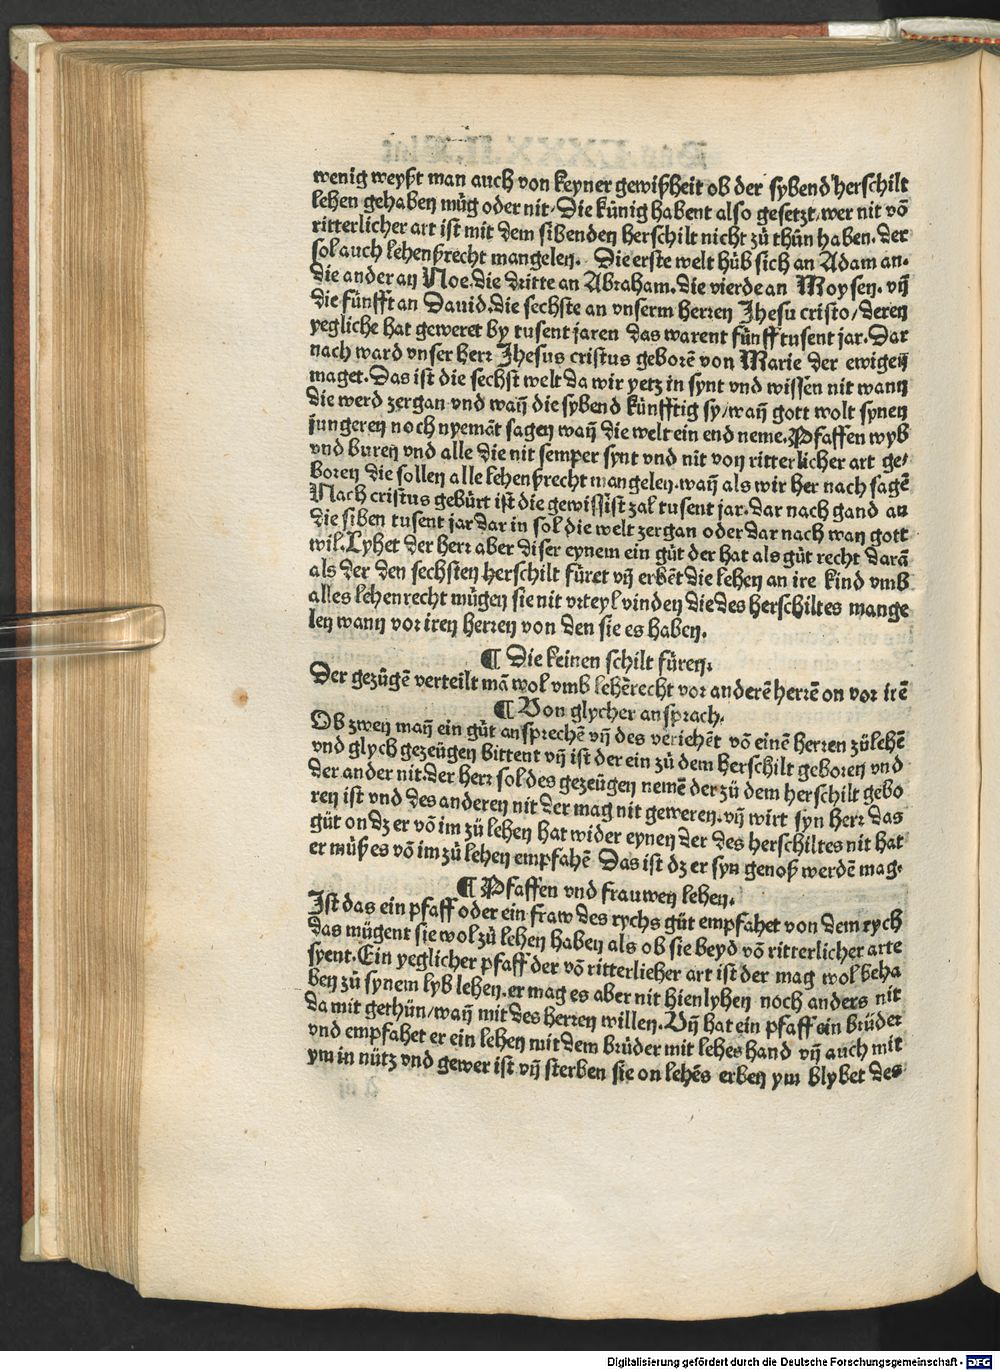 wenig weyßt man auch von keyner gewißheit ob der sybend' herschilt
lehen gehaben müg oder nit. Die künig habent also gesetzt/ wer nit vō
ritterlicher art ist mit dem sibenden herschilt nicht zů thůn haben. der
sol auch lehenßrecht mangelen. Die erste welt hůb sich an Adam an.
die ander an Noe. die dritte an Abraham. die vierde an Moysen. vñ
die fünfft an Dauid. die sechste an vnserm herren Jhesu cristo/ deren
yegliche hat geweret by tusent jaren das warent fünff tusent jar. Dar
nach ward vnser herr Jhesus cristus geborē von Marie der ewigen
maget. Das ist die sechst welt da wir yetz in synt vnd wissen nit wann
die werd zergan vnd wañ die sybend künfftig sy/ wañ gott wolt synen
jungeren noch nyemāt sagen wañ die welt ein end neme. Pfaffen wyb
vnd buren vnd alle die nit semper synt vnd nit von ritterlicher art ge/
boren die sollen alle lehenßrecht mangelen. wañ als wir her nach sagē
Nach cristus gebürt ist die gewissist zal tusent jar. dar nach gand an
die siben tusent jar dar in sol die welt zergan oder dar nach wan gott
wil. Lyhet der herr aber diser eynem ein gůt der hat als gůt recht darā
als der den sechsten herschilt fůret vñ erbēt die lehen an ire kind vmb
alles lehenrecht mügen sie nit vrteyl vinden die des herschiltes mange
len wann vor iren herren von den sie es haben.
¶ Die keinen schilt füren.
Der gezügē verteilt mā wol vmb lehērecht vor anderē herrē on vor irē
¶ Von glycher ansprach.
Ob zwen mañ ein gůt ansprechē vñ des verichēt vō einē herren zů lehē
vnd glych gezeügen bittent vñ ist der ein zů dem herschilt geboren vnd
der ander nit. der herr sol des gezeügen nemē der zů dem herschilt gebo
ren ist vnd des anderen nit der mag nit geweren. vñ wirt syn herr das
gůt on dz er vō im zů lehen hat wider eynen der des herschiltes nit hat
er můß es vō im zů lehen empfahē Das ist dz er syn genoß werdē mag.
¶ Pfaffen vnd frauwen lehen.
Ist das ein pfaff oder ein fraw des rychs gůt empfahet von dem rych
das mügent sie wol zů lehen haben als ob sie beyd vō ritterlicher arte
syent. Ein yeglicher pfaff der vō ritterlieher art ist der mag wol beha
ben zů synem lyb lehen. er mag es aber nit hienlyhen noch anders nit
da mit gethůn/ wañ mit des herren willen. Vñ hat ein pfaff ein brůder
vnd empfahet er ein lehen mit dem brůder mit lehes hand vñ auch mit
ym in nütz vnd gewer ist vñ sterben sie on lehēs erben ym blybet des
Digitalisierung gefördert durch die Deutsche Forschungsgemeinschaft - DFG